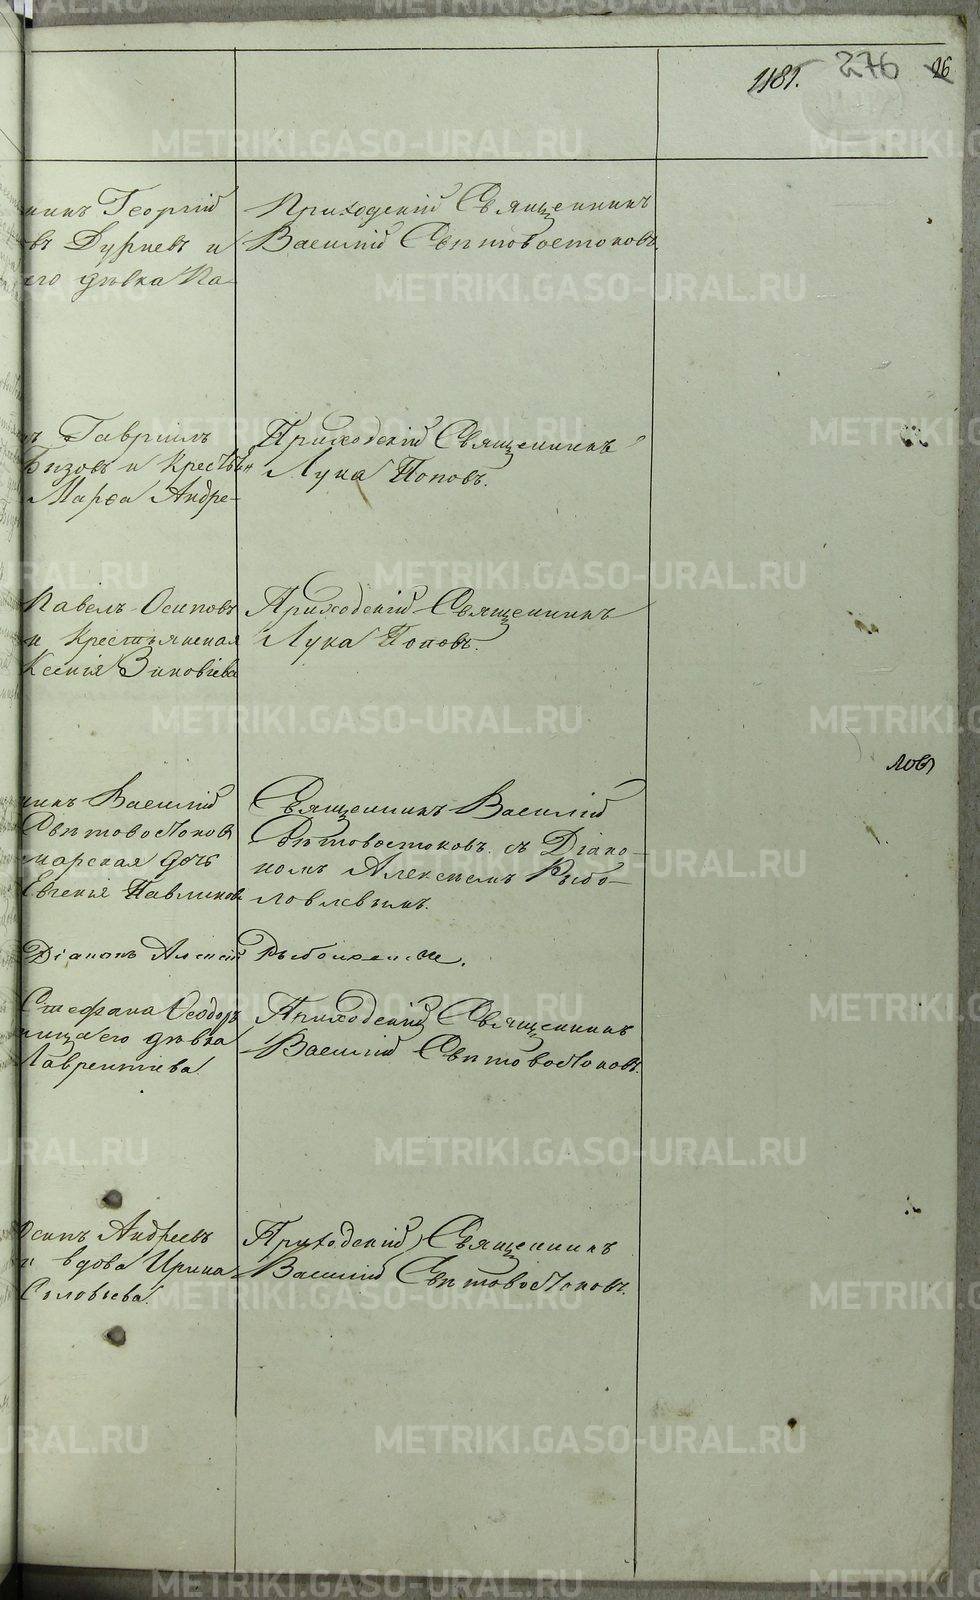 1181. 276 26
никъ Георгій
въ Дуриевъ и
его дѣвка Па-
Приходскій Священникъ
Василій Свѣтовостоковъ.
ъ Гавріилъ
Бизовъ и крестьян
Марѳа Андре-
Приходскій Священникъ
Лука Поповъ.
Павелъ Осиповъ
и крестьянская
Ксенія Зиновіева
Приходскій Священникъ
Лука Поповъ.
ловъ
никъ Василій
Свѣтовостоков
марская дочь
Евгенія Павлинов
Священникъ Василій
Свѣтовостоковъ съ Діако-
номъ Алексѣемъ Рыбо-
ловлевымъ.
Діаконъ Алексій
Стефана Ѳеодоръ
ница его дѣвка
Лаврентіева.
Приходскій Священникъ
Василій Свѣтовостоковъ.
Осипъ Андреевъ
и вдова Ирина
Соловьева.
Приходскій Священникъ
Василій Свѣтовостоковъ.
METRIKI.GASO-URAL.RU